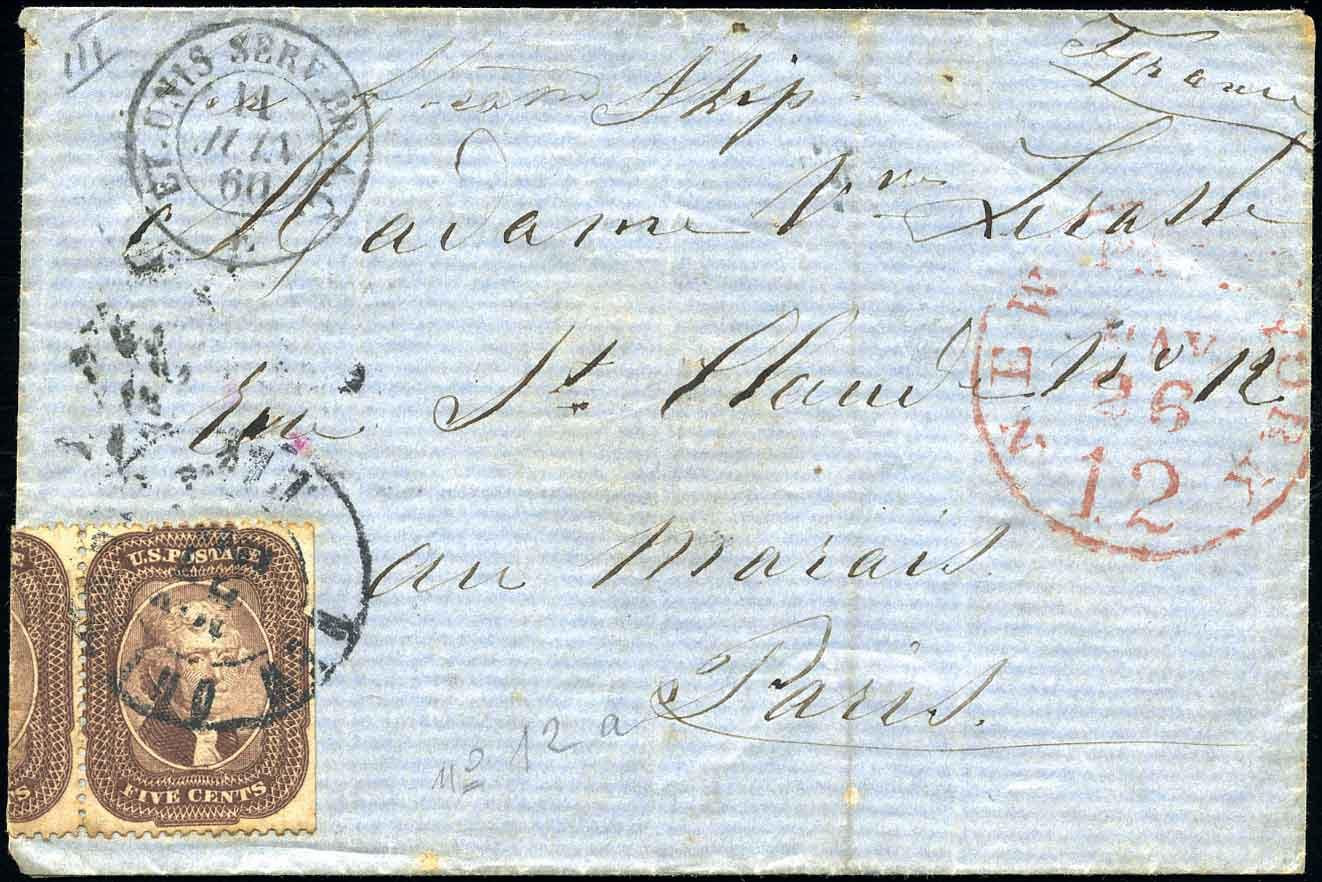 III
France
Steam Ship
ET. DENIS SERV. BR. A.C.
14
JUIN
60
E
Madame Vve
NEW YORK
PAID
MAY
26
12
Rue St Claude No 12
au marais
Paris.
U.S. POSTAGE
FIVE CENTS
no 12 a